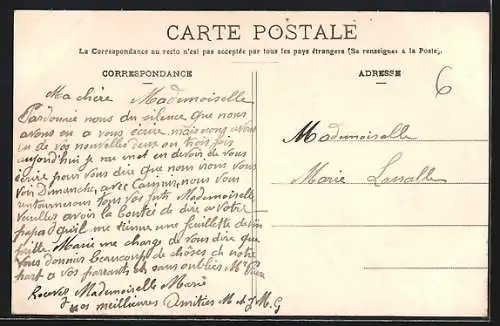 CARTE POSTALE
La Correspondance au recto n'est pas acceptée par tous les pays étrangers (Se renseigner à la Poste).
CORRESPONDANCE
ADRESSE
6
Ma chère Mademoiselle
Pardonnie nous du silence que nous
avons eu a vous écrire mais nous avons
eu de vos nouvelles deux ou trois fois
aujourd'hui je me met en devoir de vous
écrire pour vous dire que nous irons vous
voir Dimanche, avec nous vous
retournerons tous vos futs Mademoiselle
veuilles avoir la bonté de dire a votre
papa qu'il me tienne une feuillette de vin
Marie me charge de vous dire que
vous donnier beaucoup de chôses de notre
part a vos parrants et sans oublier Mr
Recevez Mademoiselle Marie
nos meilleures Amitiés M. et J M. G
Mademoiselle
Marie Lassalle